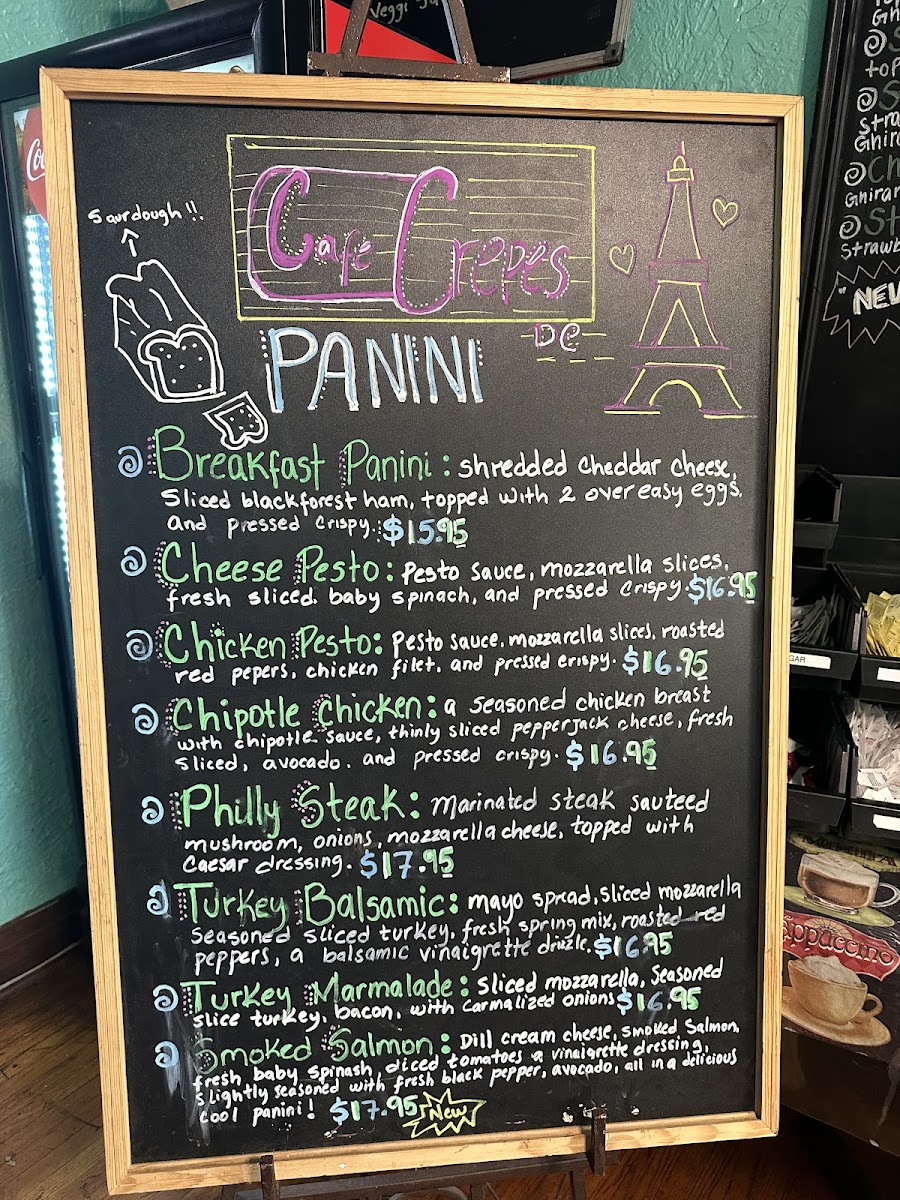 Veggi
Coc
Sourdough !!
Café Crepes
DE
PANINI
Breakfast Panini : shredded cheddar cheese,
Sliced blackforest ham, topped with 2 over easy eggs,
and pressed crispy. $15.95
Cheese Pesto: Pesto sauce, mozzarella slices,
fresh sliced. baby spinach, and pressed crispy. $16.95
Chicken Pesto: Pesto sauce, mozzarella slices, roasted
red pepers, chicken filet, and pressed crispy. $16.95
Chipotle Chicken: a seasoned chicken breast
with chipotle sauce, thinly sliced pepperjack cheese, fresh
sliced, avocado. and pressed crispy. $16.95
Philly Steak: Marinated steak sauteed
mushroom, onions, mozzarella cheese, topped with
Caesar dressing. $17.95
Turkey Balsamic: mayo spread, sliced mozzarella
seasoned sliced turkey, fresh spring mix, roasted red
peppers, a balsamic vinaigrette drizzle. $16.95
Turkey Marmalade: sliced mozzarella, seasoned
slice turkey, bacon, with carmalized onions $16.95
Smoked Salmon: Dill cream cheese, smoked salmon,
fresh baby spinash, diced tomatoes a vinaigrette dressing,
slightly seasoned with fresh black pepper, avocado, all in a delicious
cool panini! $17.95 New
Gh
S
top
S
Stra
Ghira
Ch
Ghirar
St
Strawb
"NEW
GAR
appuccino